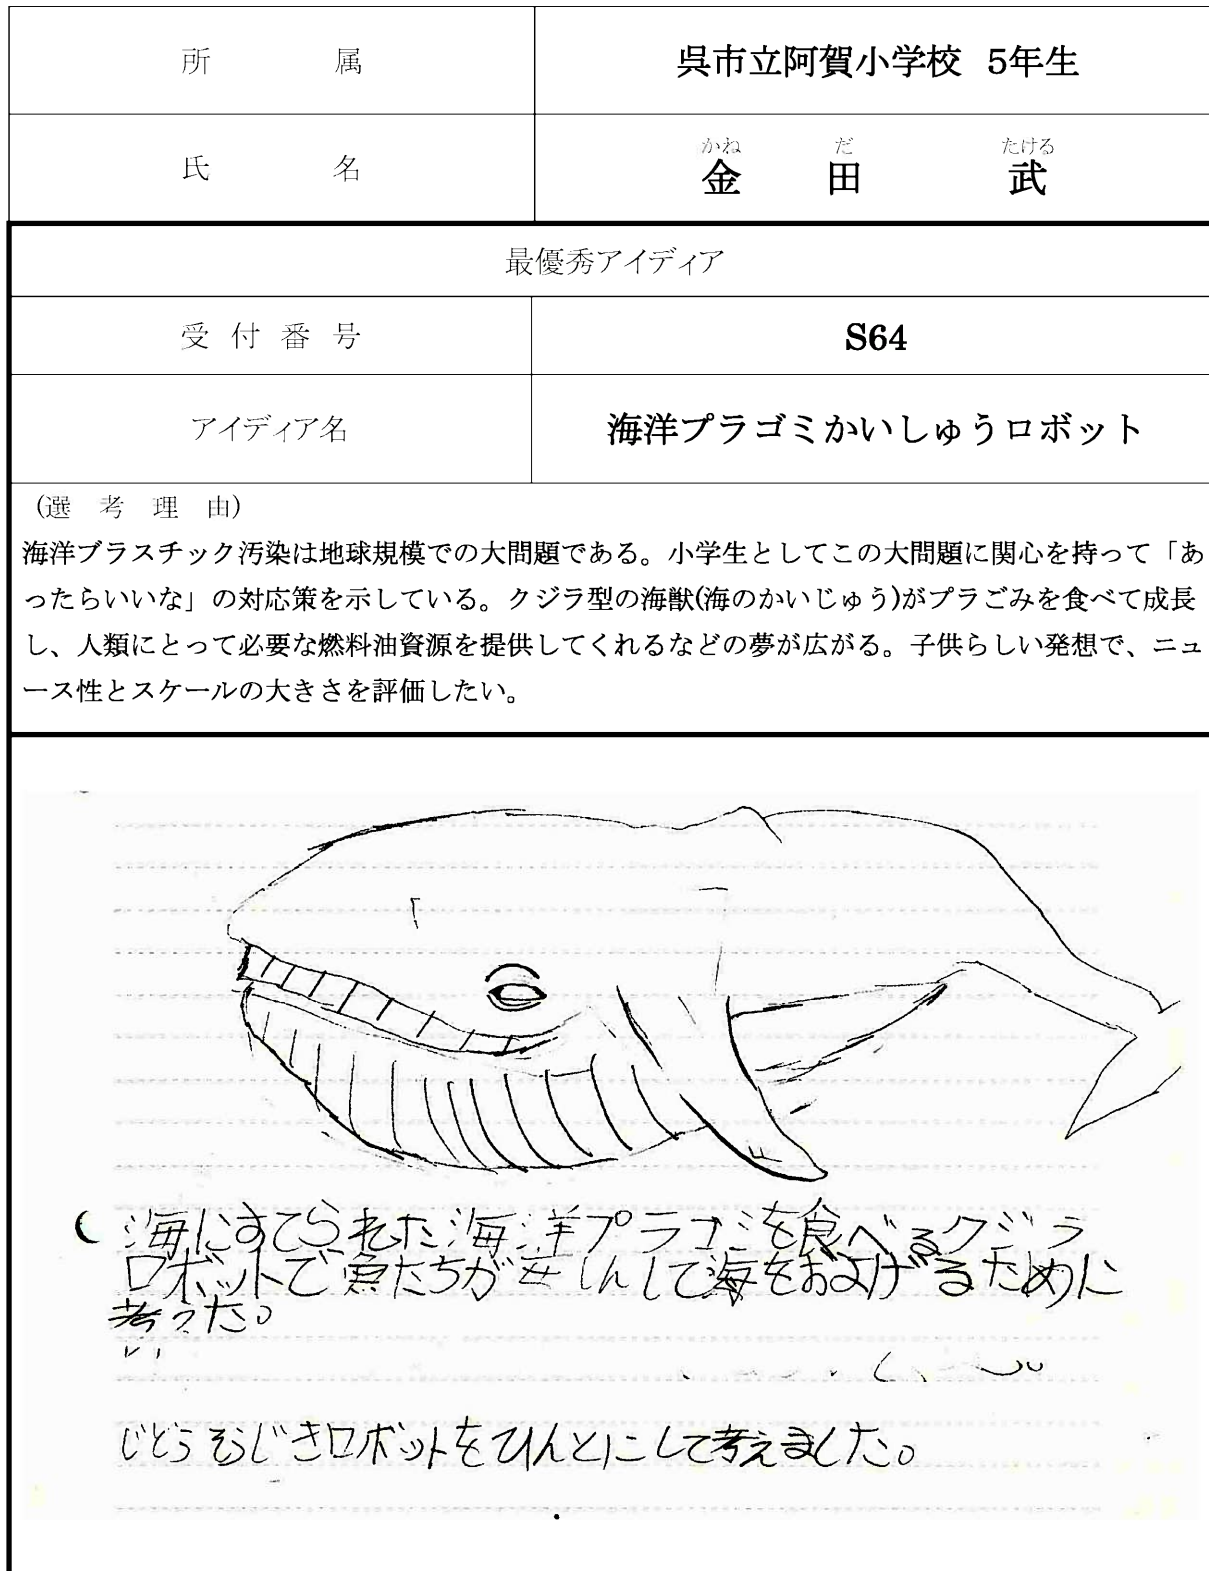 所属 呉市立阿賀小学校 5年生
かね だ たける
氏名 金田 武
最優秀アイディア
受付番号 S64
アイディア名 海洋プラゴミかいしゅうロボット
(選考理由)
海洋プラスチック汚染は地球規模での大問題である。小学生としてこの大問題に関心を持って「あ
ったらいいな」の対応策を示している。クジラ型の海獣(海のかいじゅう)がプラごみを食べて成長
し、人類にとって必要な燃料油資源を提供してくれるなどの夢が広がる。子供らしい発想で、ニュ
ース性とスケールの大きさを評価したい。
海にすてられた海洋プラゴミを食べるクジラ
ロボットで魚たちが安しんして海をおよげるために
考えた。
じどうそうじきロボットをひんとにして考えました。